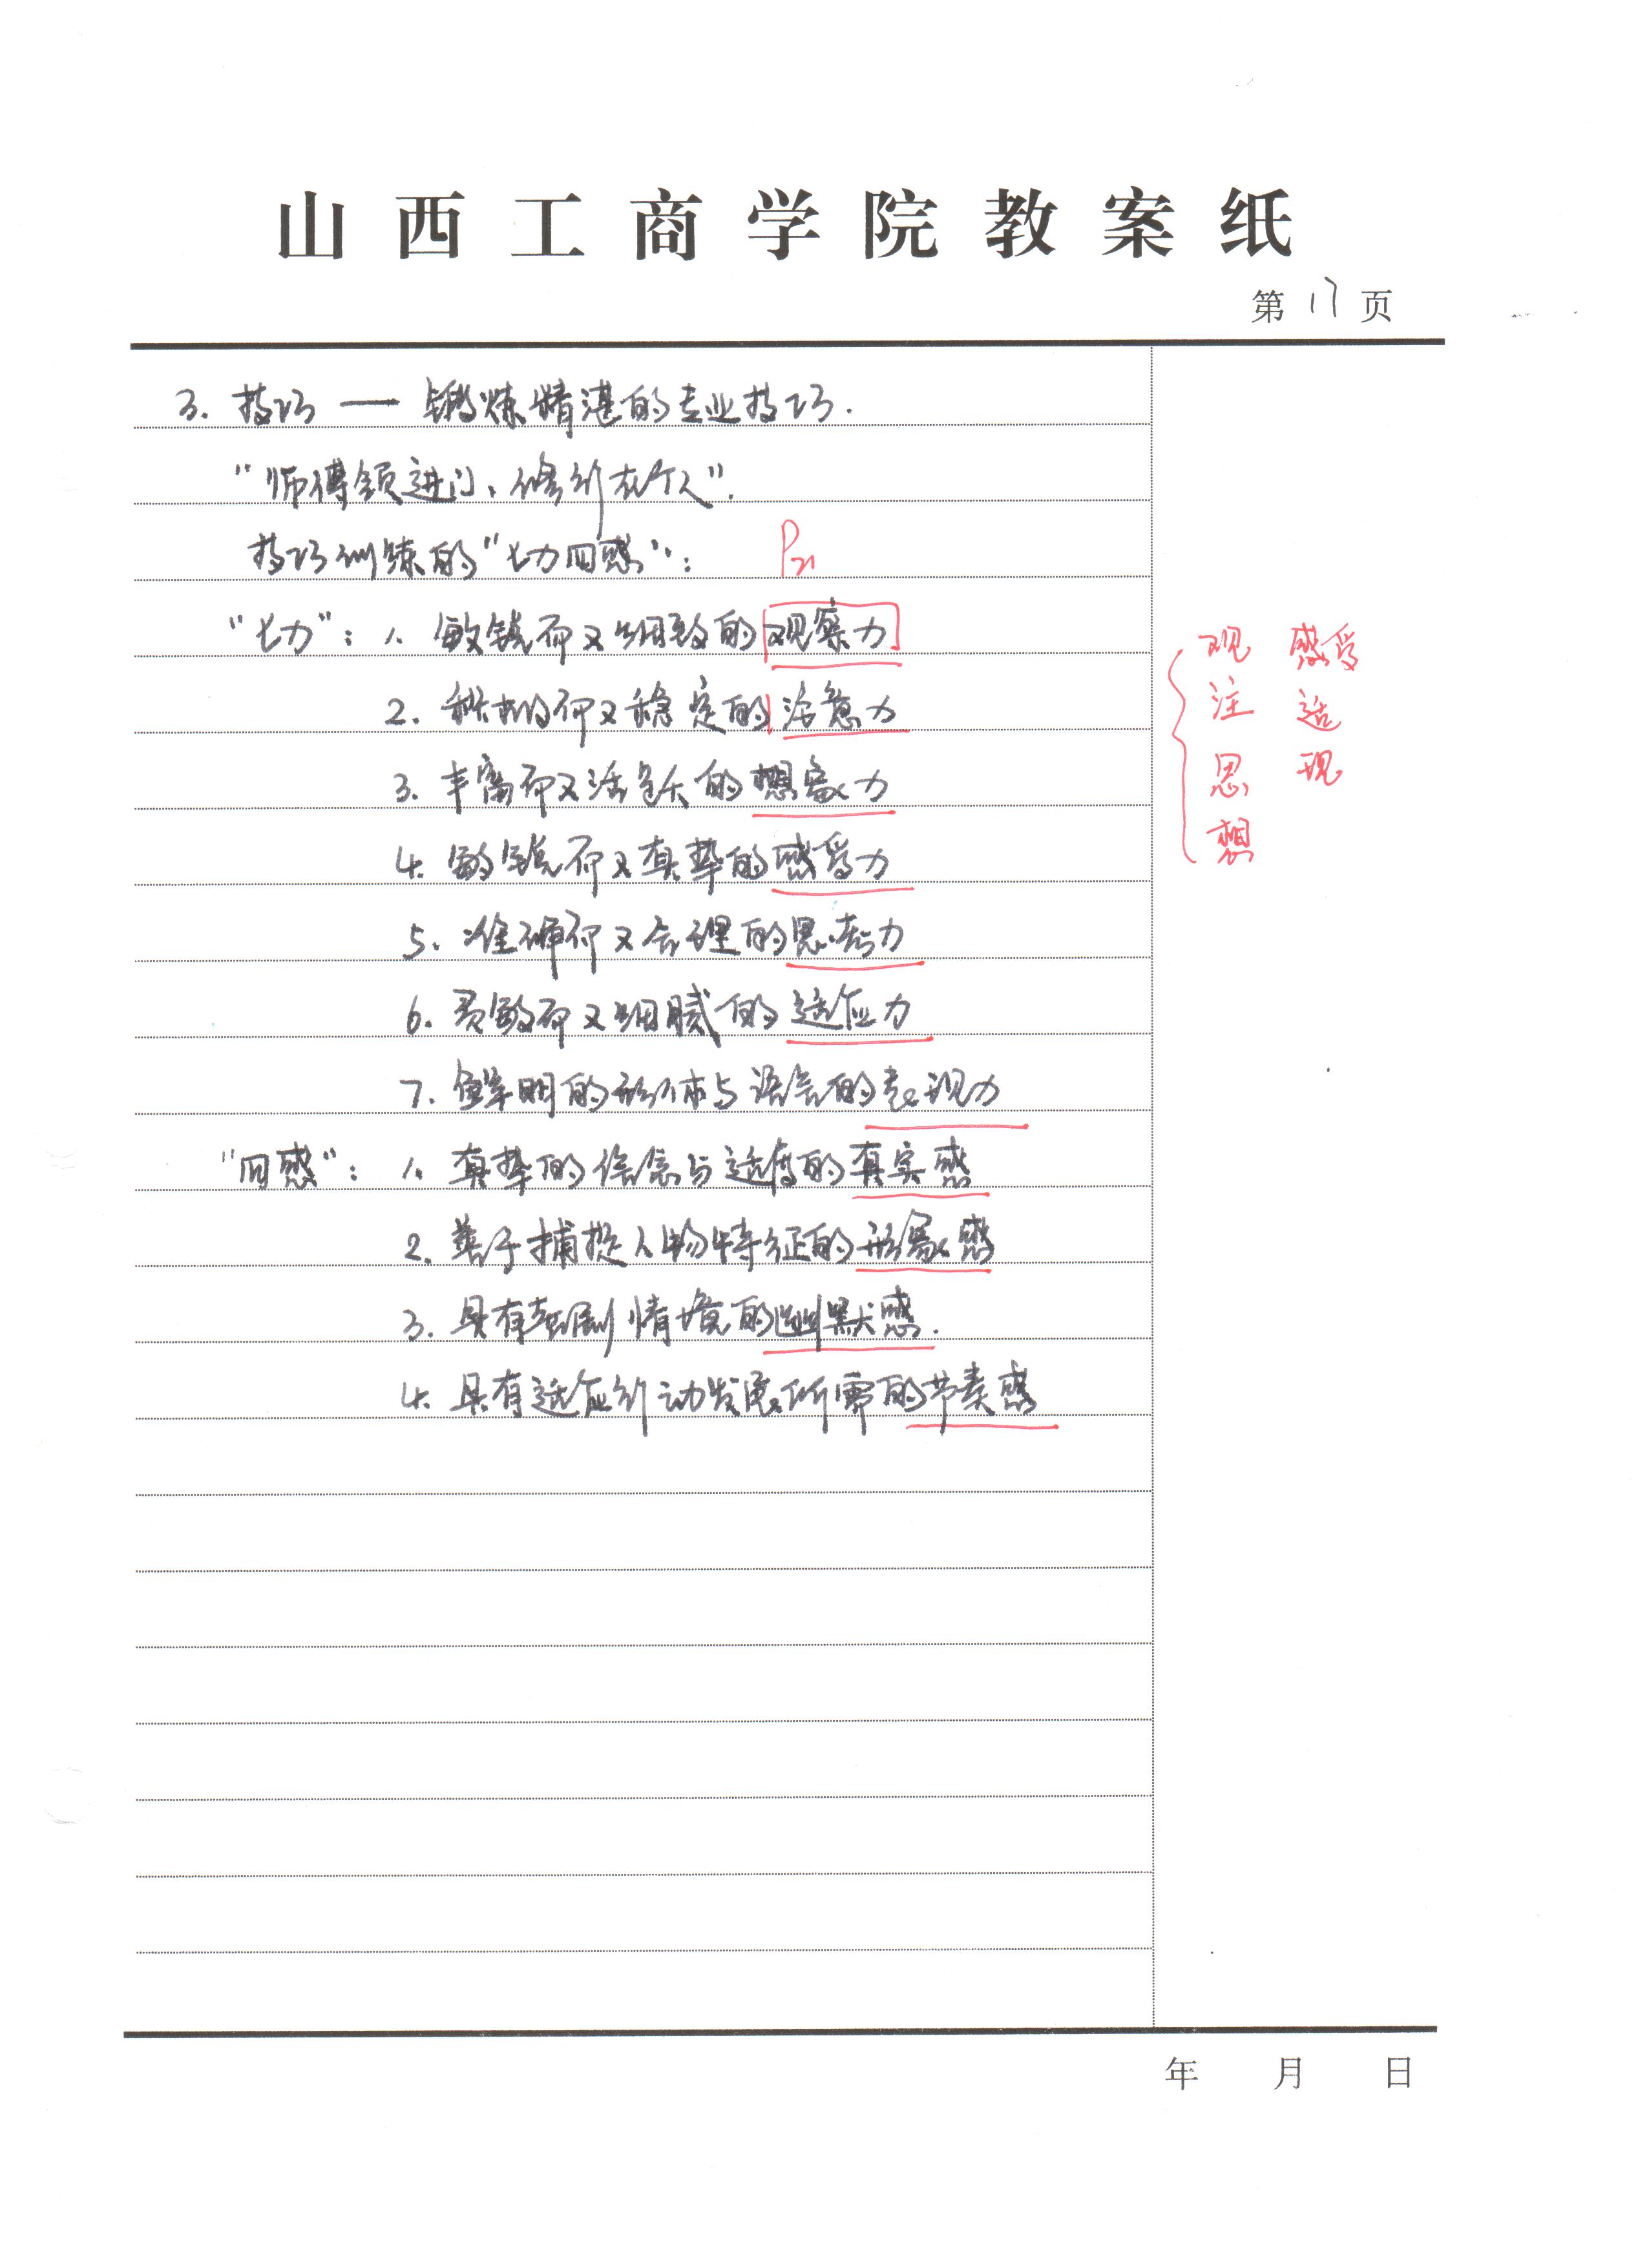 山西工商学院教案纸
第17页
3. 技巧 — 锻炼精湛的专业技巧.
"师傅领进门、修行在个人".
技巧训练的"七力四感": P21
"七力": 1. 敏锐而又细致的观察力
2. 积极而又稳定的注意力
3. 丰富而又活跃的想象力
4. 敏锐而又真挚的感受力
5. 准确而又合理的思考力
6. 灵敏而又细腻的适应力
7. 鲜明的形体与语言的表现力
"四感": 1. 真挚的信念与适度的真实感
2. 善于捕捉人物特征的形象感
3. 具有喜剧情境的幽默感.
4. 具有适应行动发展所需的节奏感
观 感受
注 适
思 现
想
年 月 日